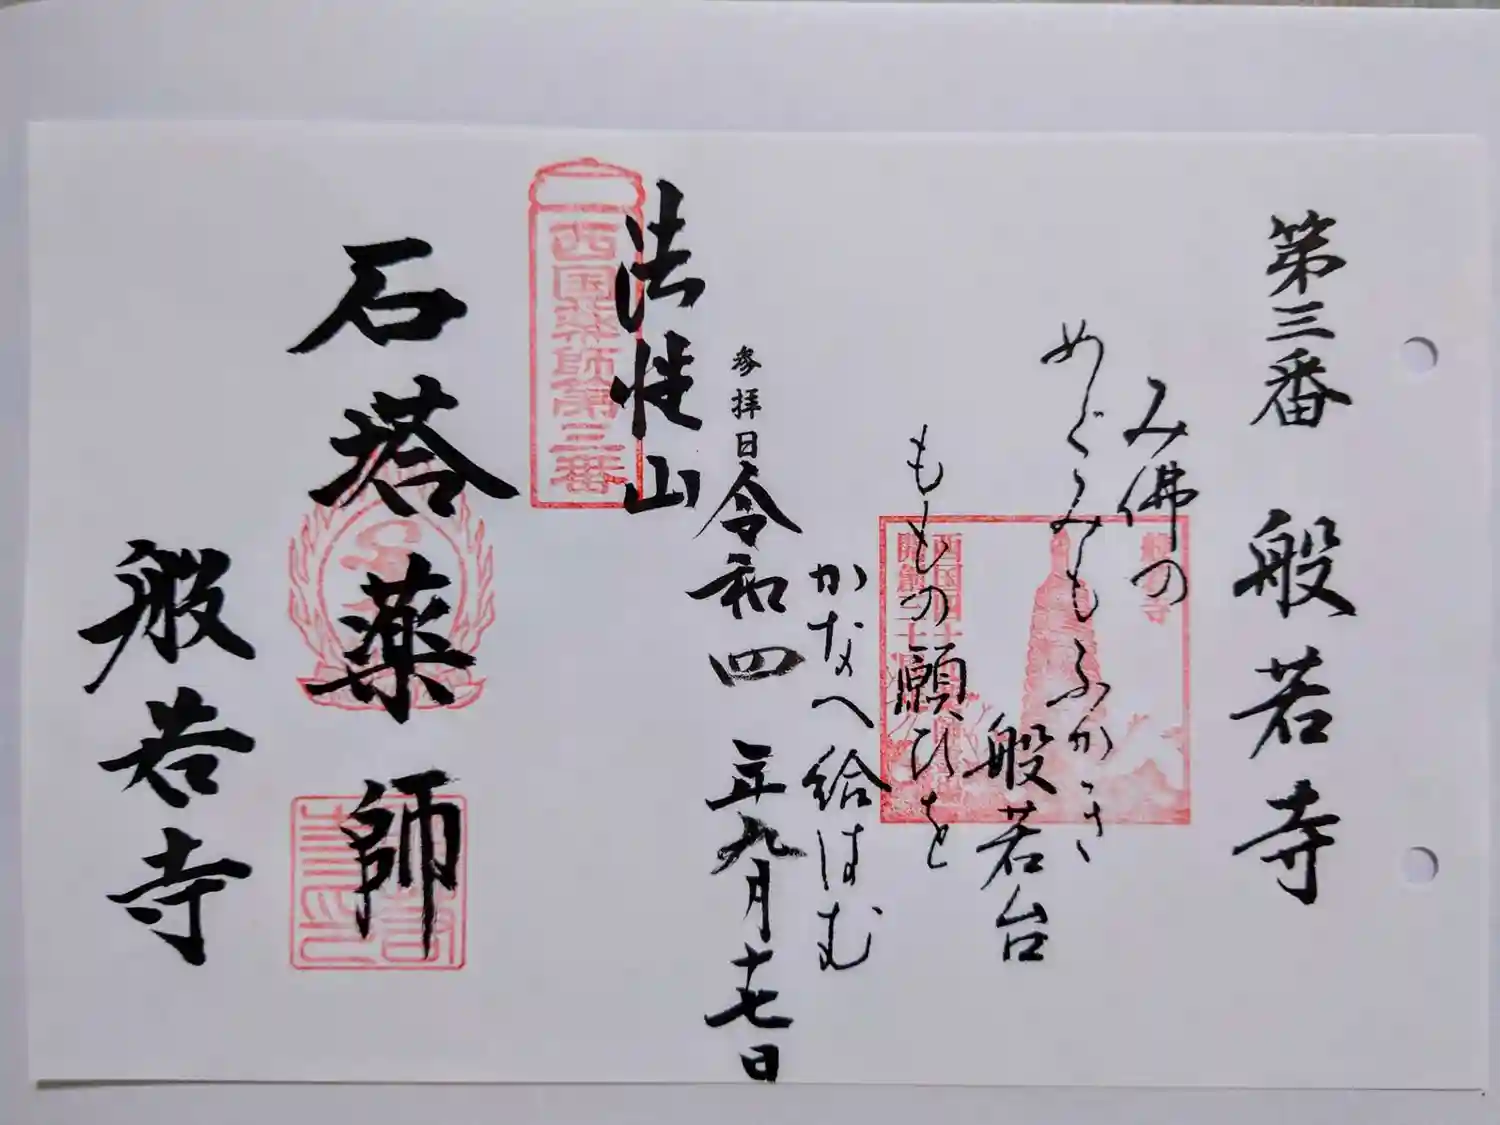 第三番 般若寺
み佛の
めぐみもふかき
般若台
ももの願ひを
かなへ給はむ
参拝日令和四年九月十七日
法性山
西国薬師第三番
石塔薬師
般若寺